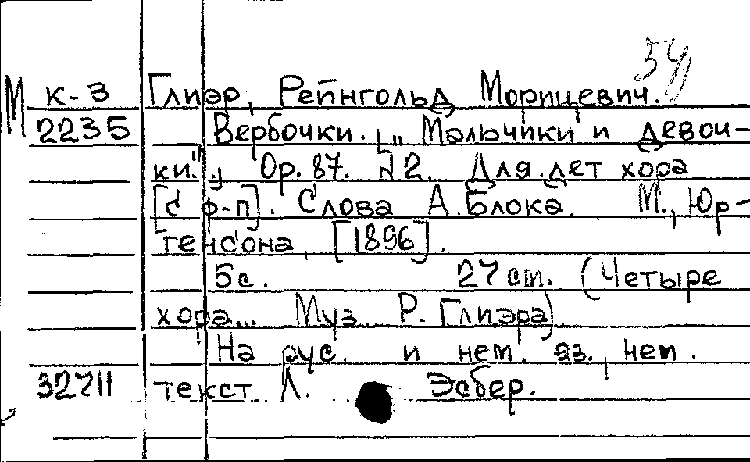 54
М к-3 Глиэр, Рейнгольд Морицевич.
2235 Вербочки. [„Мальчики и девоч-
ки."] Op. 87. №2. Для дет хора
[с ф-п]. Слова А. Блока. М., Юр-
генсона, [1896].
5с. 27 см. (Четыре
хора... Муз. Р. Глиэра)
На рус. и нем. яз., нем.
32711 текст Л. Эсбер.